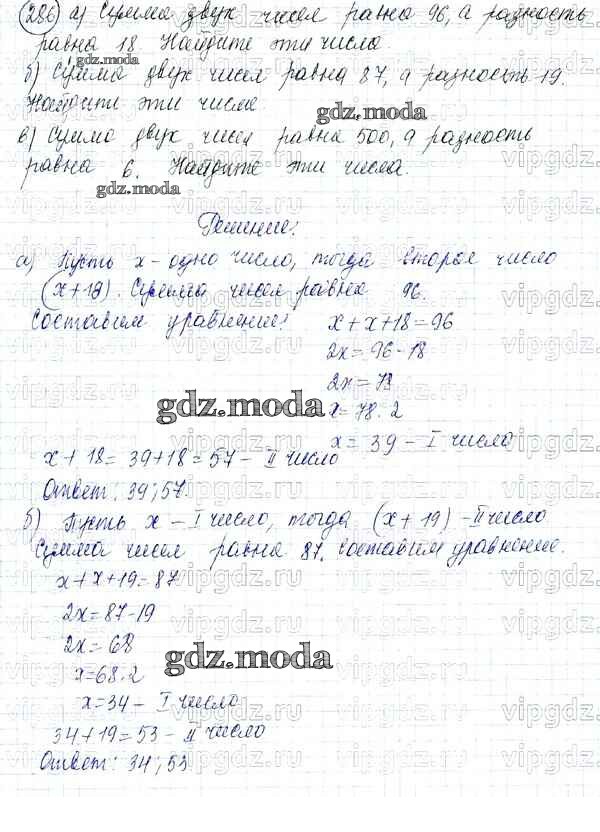 286 а) Сумма двух чисел равна 96, а разность
равна 18. Найдите эти числа.
б) Сумма двух чисел равна 87, а разность 19.
Найдите эти числа
gdz.moda
в) Сумма двух чисел равна 500, а разность
равна 6. Найдите эти числа.
gdz.moda
Решение:
а) Пусть x - одно число, тогда второе число
(x+18). Сумма чисел равна 96.
Составим уравнение:
x + x + 18 = 96
2x = 96 - 18
2x = 78
gdz.moda
x = 78:2
x = 39 - I число
x + 18 = 39 + 18 = 57 - II число
Ответ: 39; 57.
б) Пусть x - I число, тогда (x + 19) - II число
Сумма чисел равна 87. Составим уравнение.
x + x + 19 = 87
2x = 87 - 19
2x = 68
gdz.moda
x = 68:2
x = 34 - I число
34 + 19 = 53 - II число
Ответ: 34; 53
vipgdz.ru